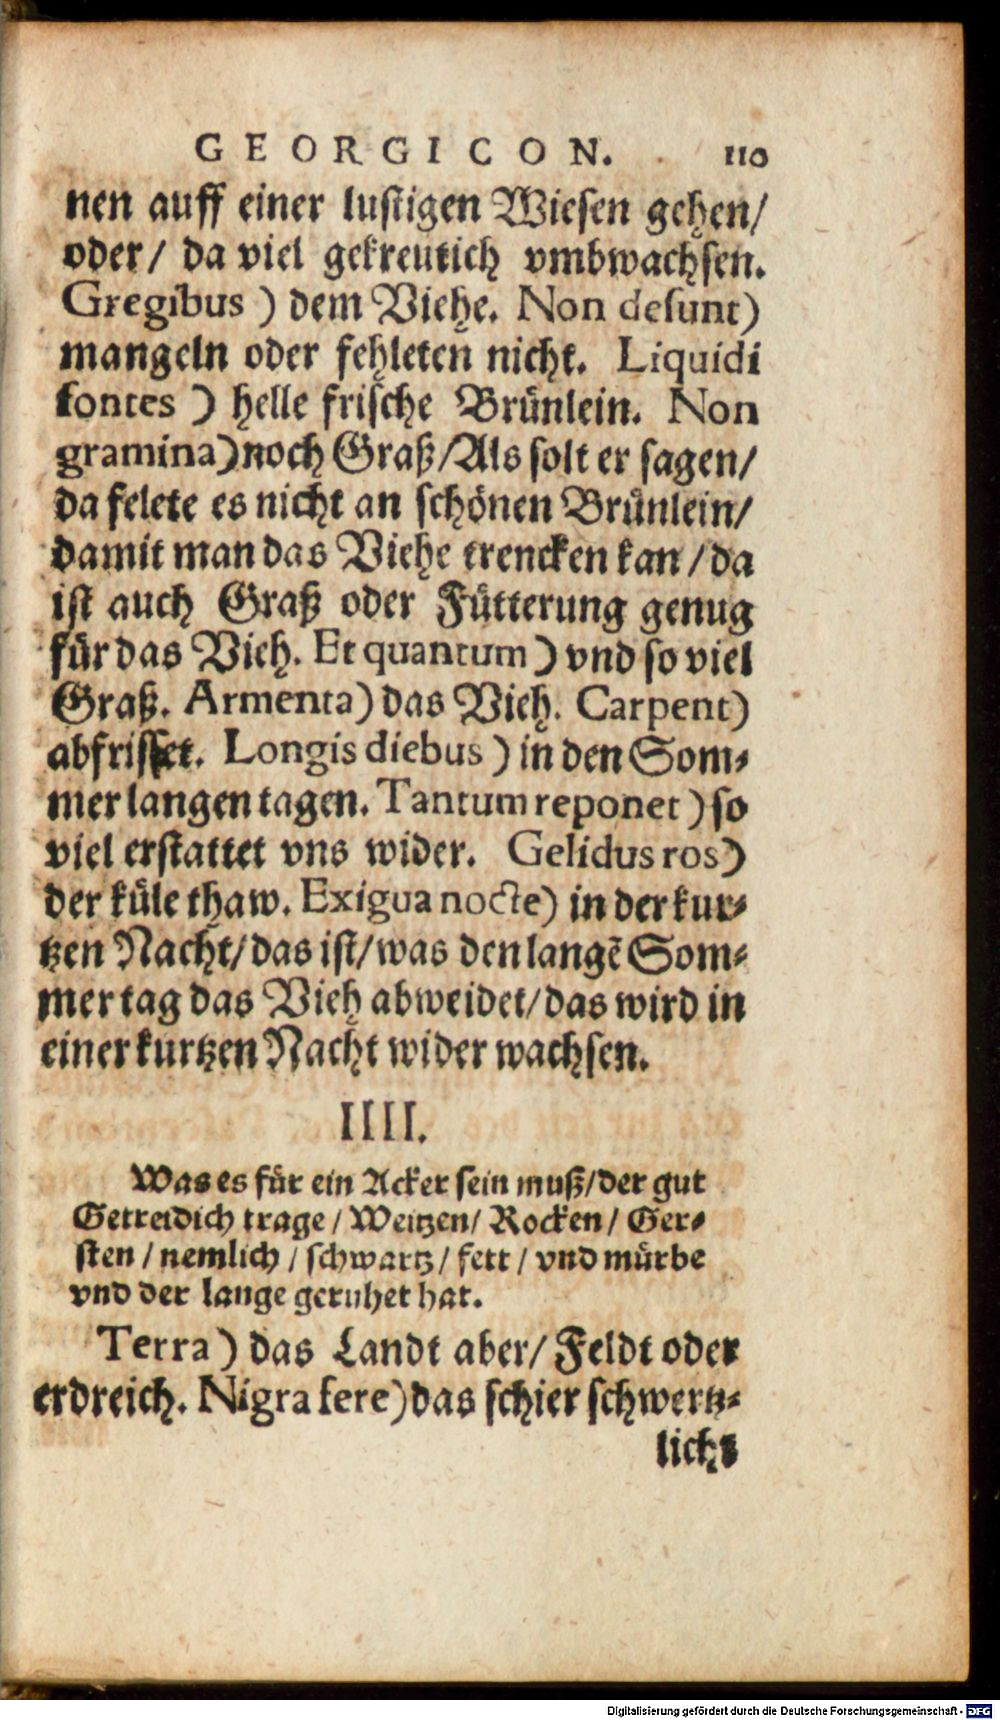 GEORGICON. 110
nen auff einer lustigen Wiesen gehen/
oder/ da viel gekreutich vmbwachsen.
Gregibus ) dem Viehe. Non desunt)
mangeln oder fehleten nicht. Liquidi
fontes ) helle frische Bruͤnlein. Non
gramina) noch Graß/Als solt er sagen/
da felete es nicht an schoͤnen Bruͤnlein/
damit man das Viehe trencken kan /da
ist auch Graß oder Fuͤtterung genug
fuͤr das Vieh. Et quantum ) vnd so viel
Graß. Armenta) das Vieh. Carpent)
abfrisset. Longis diebus ) in den Som⸗
mer langen tagen. Tantum reponet ) so
viel erstattet vns wider. Gelidus ros)
der kuͤle thaw. Exigua nocte) in der kur⸗
tzen Nacht/das ist/was den langẽ Som⸗
mer tag das Vieh abweidet/das wird in
einer kurtzen Nacht wider wachsen.
IIII.
Was es fuͤr ein Acker sein muß/der gut
Getreidich trage / Weitzen/ Rocken/ Ger⸗
sten / nemlich / schwartz / fett / vnd muͤrbe
vnd der lange geruhet hat.
Terra ) das Landt aber/ Feldt oder
erdreich. Nigra fere) das schier schwertz⸗
licht
Digitalisierung gefördert durch die Deutsche Forschungsgemeinschaft - DFG